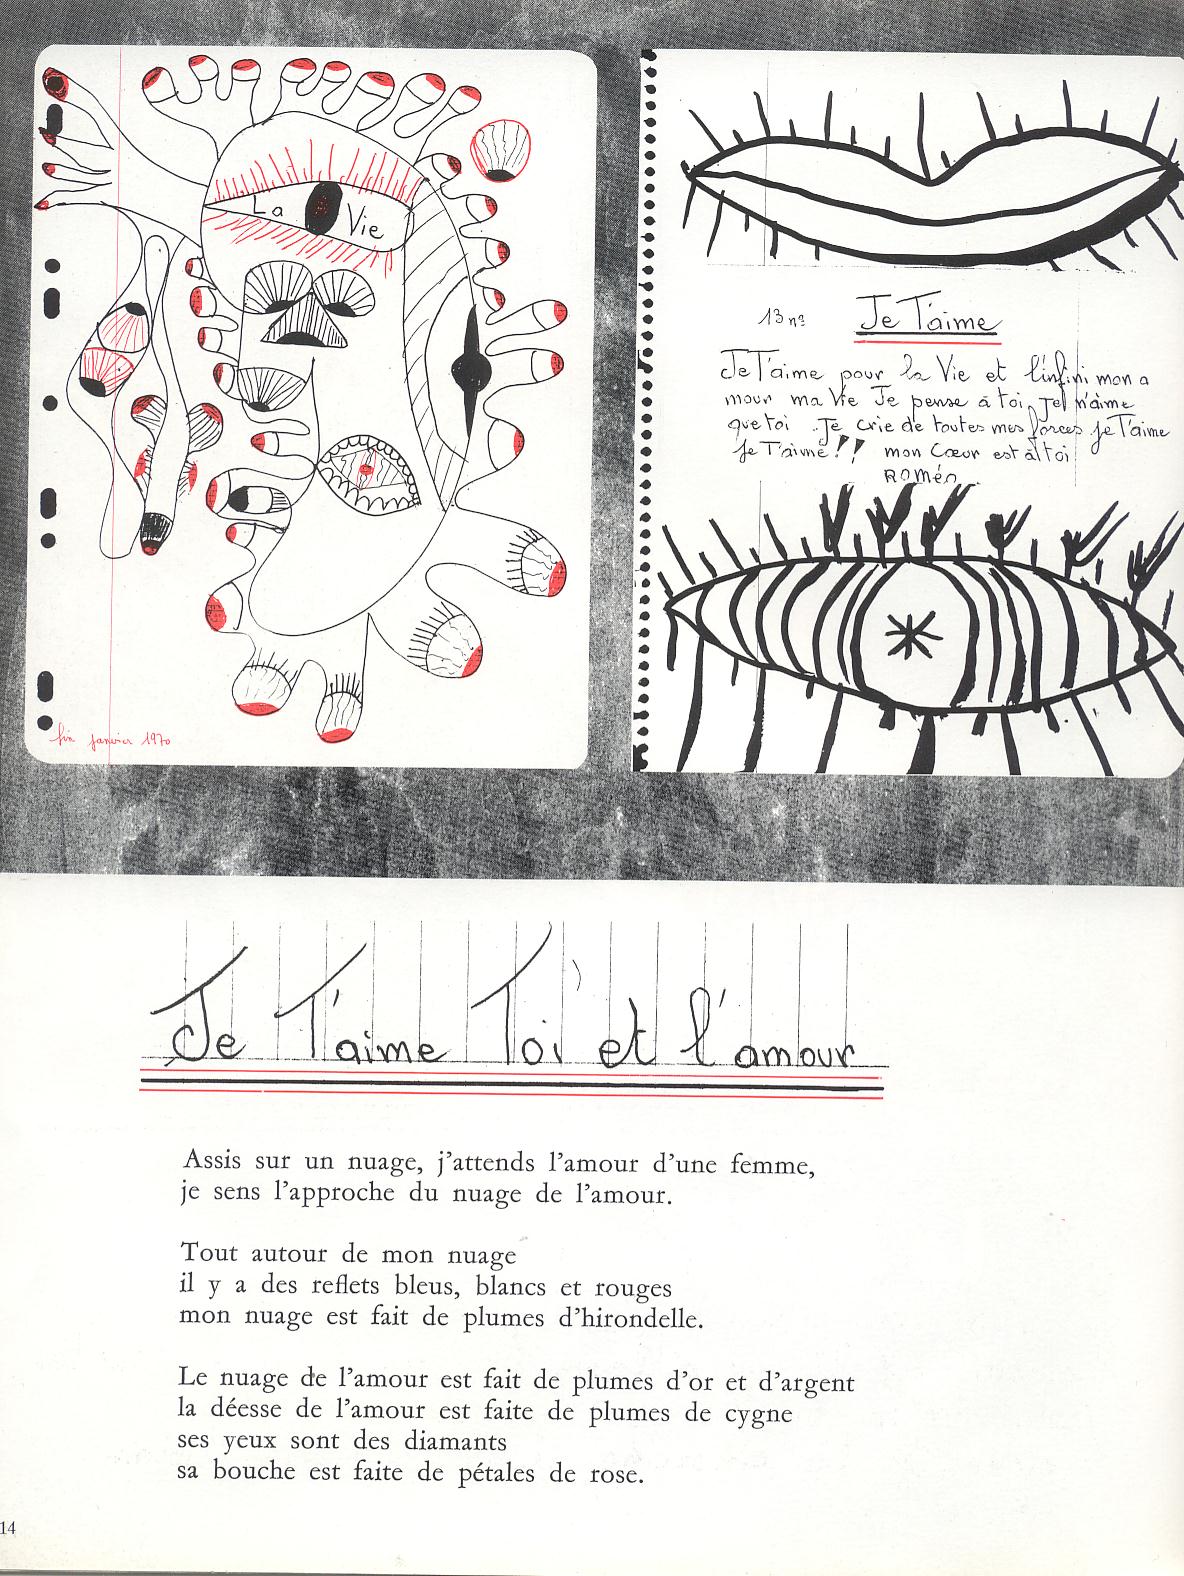 La Vie
fin janvier 1970
Je T'aime
Je T'aime pour la Vie et l'infini mon a
mour ma Vie Je pense à toi, Je n'aime
que toi. Je crie de toutes mes forces Je T'aime
Je T'aime!! mon Cœur est à toi
ROMÉO
Je T'aime Toi et l'amour
Assis sur un nuage, j'attends l'amour d'une femme,
je sens l'approche du nuage de l'amour.
Tout autour de mon nuage
il y a des reflets bleus, blancs et rouges
mon nuage est fait de plumes d'hirondelle.
Le nuage de l'amour est fait de plumes d'or et d'argent
la déesse de l'amour est faite de plumes de cygne
ses yeux sont des diamants
sa bouche est faite de pétales de rose.
14